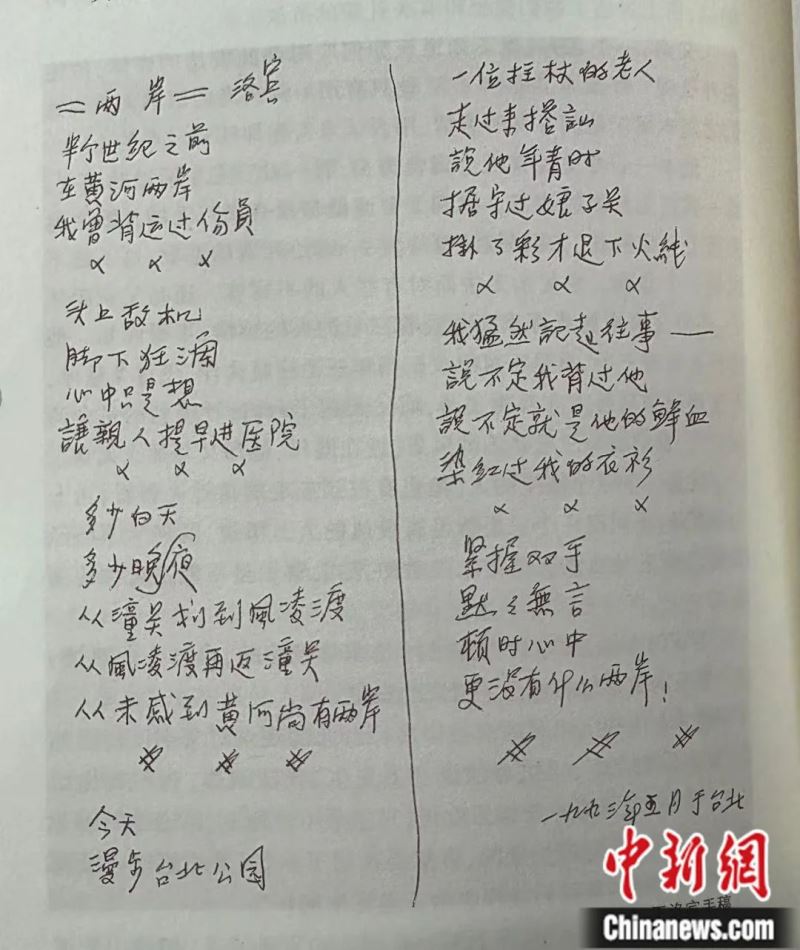 =两岸= 洛宾
半个世纪之前
在黄河两岸
我曾背运过伤員
× × ×
头上敌机
脚下狂澜
心中只是想
讓親人提早进医院
× × ×
多少白天
多少晚夜
从潼关划到風凌渡
从風凌渡再返潼关
从未感到黄河尚有两岸
今天
漫步台北公园
一位拄杖的老人
走过来搭訕
說他年青时
据守过娘子关
掛了彩才退下火綫
× × ×
我猛然記起往事——
說不定我背过他
說不定就是他的鲜血
染红过我的衣衫
× × ×
紧握双手
默々無言
顿时心中
更没有什么两岸!
一九九三年五月于台北
洛宾手稿
中新網
Chinanews.com